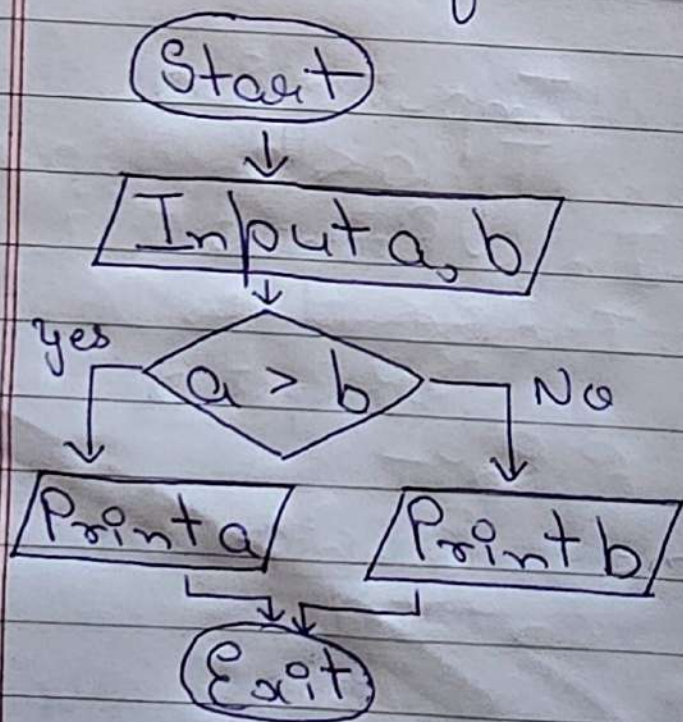 Start
Input a, b
yes
a > b
No
Print a
Print b
Exit